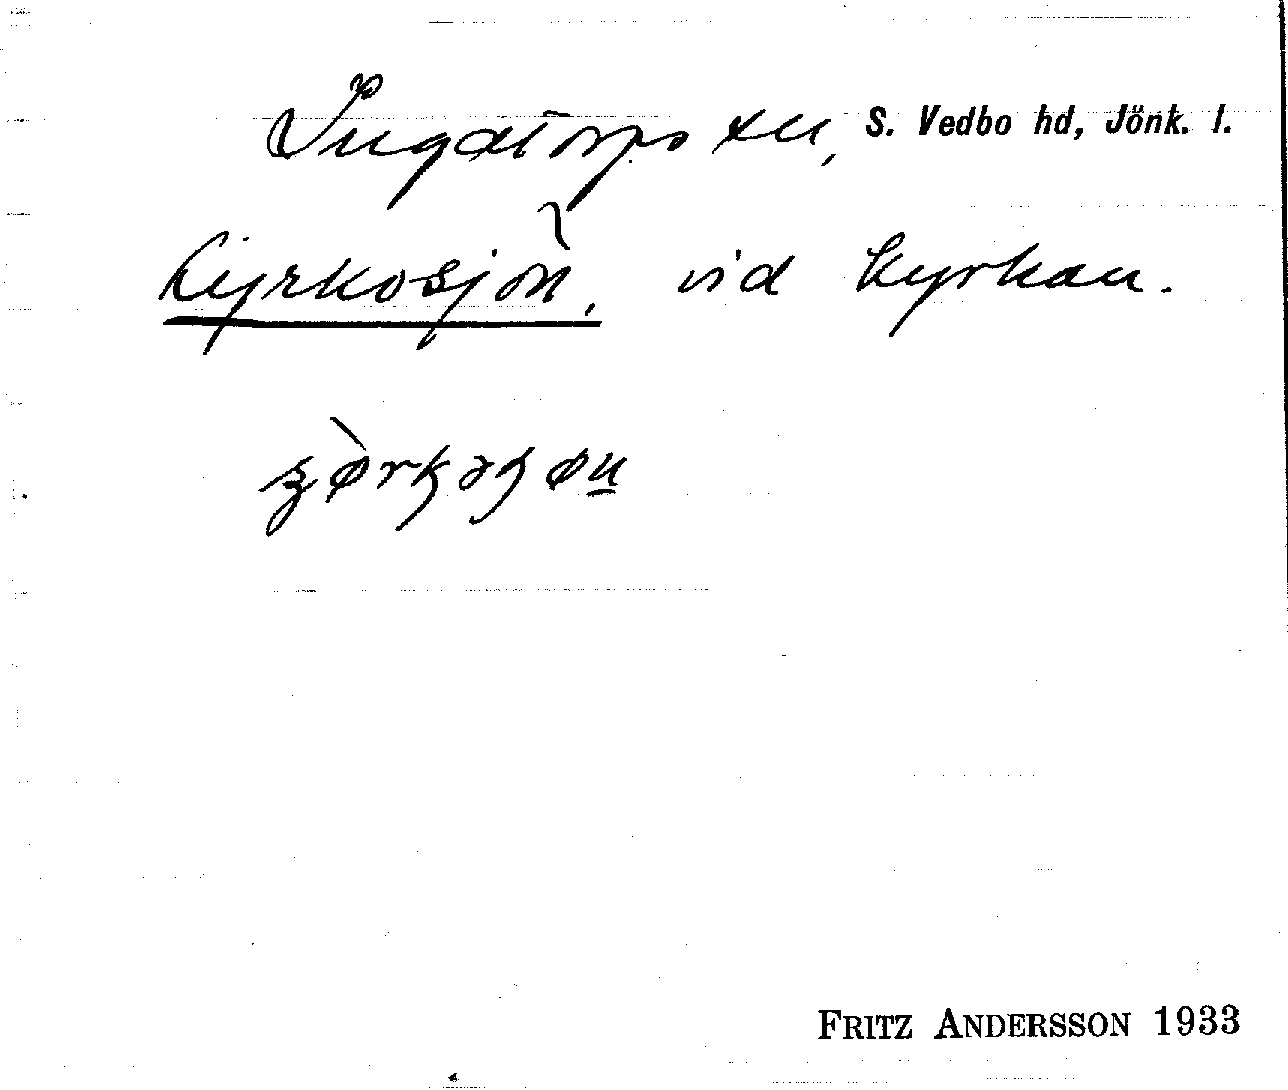 Ingatorps sn, S. Vedbo hd, Jönk. l.
Kyrkosjön, vid kyrkan.
FRITZ ANDERSSON 1933